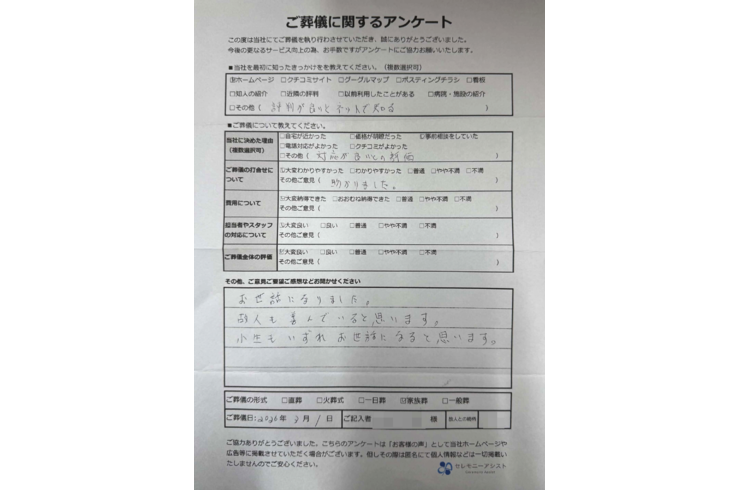 ご葬儀に関するアンケート
この度は当社にてご葬儀を執り行わさせていただき、誠にありがとうございました。
今後の更なるサービス向上の為、お手数ですがアンケートにご協力お願いいたします。
■当社を最初に知ったきっかけをを教えてください。（複数選択可）
☑ホームページ □クチコミサイト □グーグルマップ □ポスティングチラシ □看板
□知人の紹介 □近隣の評判 □以前利用したことがある □病院・施設の紹介
□その他（ 評判が良いと ）
■ご葬儀について教えてください。
当社に決めた理由（複数選択可） □自宅が近かった □価格が明瞭だった ☑事前相談をしていた
□電話対応がよかった □クチコミがよかった
□その他（ 対応が良いとの評価 ）
ご葬儀の打合せについて ☑大変わかりやすかった □わかりやすかった □普通 □やや不満 □不満
その他ご意見（ 助かりました。
費用について ☑大変納得できた □おおむね納得できた □普通 □やや不満 □不満
その他ご意見（ ）
担当者やスタッフの対応について ☑大変良い □良い □普通 □やや不満 □不満
その他ご意見（ ）
ご葬儀全体の評価 ☑大変良い □良い □普通 □やや不満 □不満
その他ご意見（ ）
その他、ご意見ご要望ご感想などお聞かせください
お世話になりました。
故人も喜んでいると思います。
小生もいずれお世話になると思います。
ご葬儀の形式 □直葬 □火葬式 □一日葬 ☑家族葬 □一般葬
ご葬儀日: 2026年 月 1日 ご記入者 様 故人との続柄
ご協力ありがとうございました。こちらのアンケートは「お客様の声」として当社ホームページや
広告等に掲載させていただく場合がございます。但しその際は匿名にて個人情報などは一切掲載い
たしませんのでご安心ください。
セレモニーアシスト